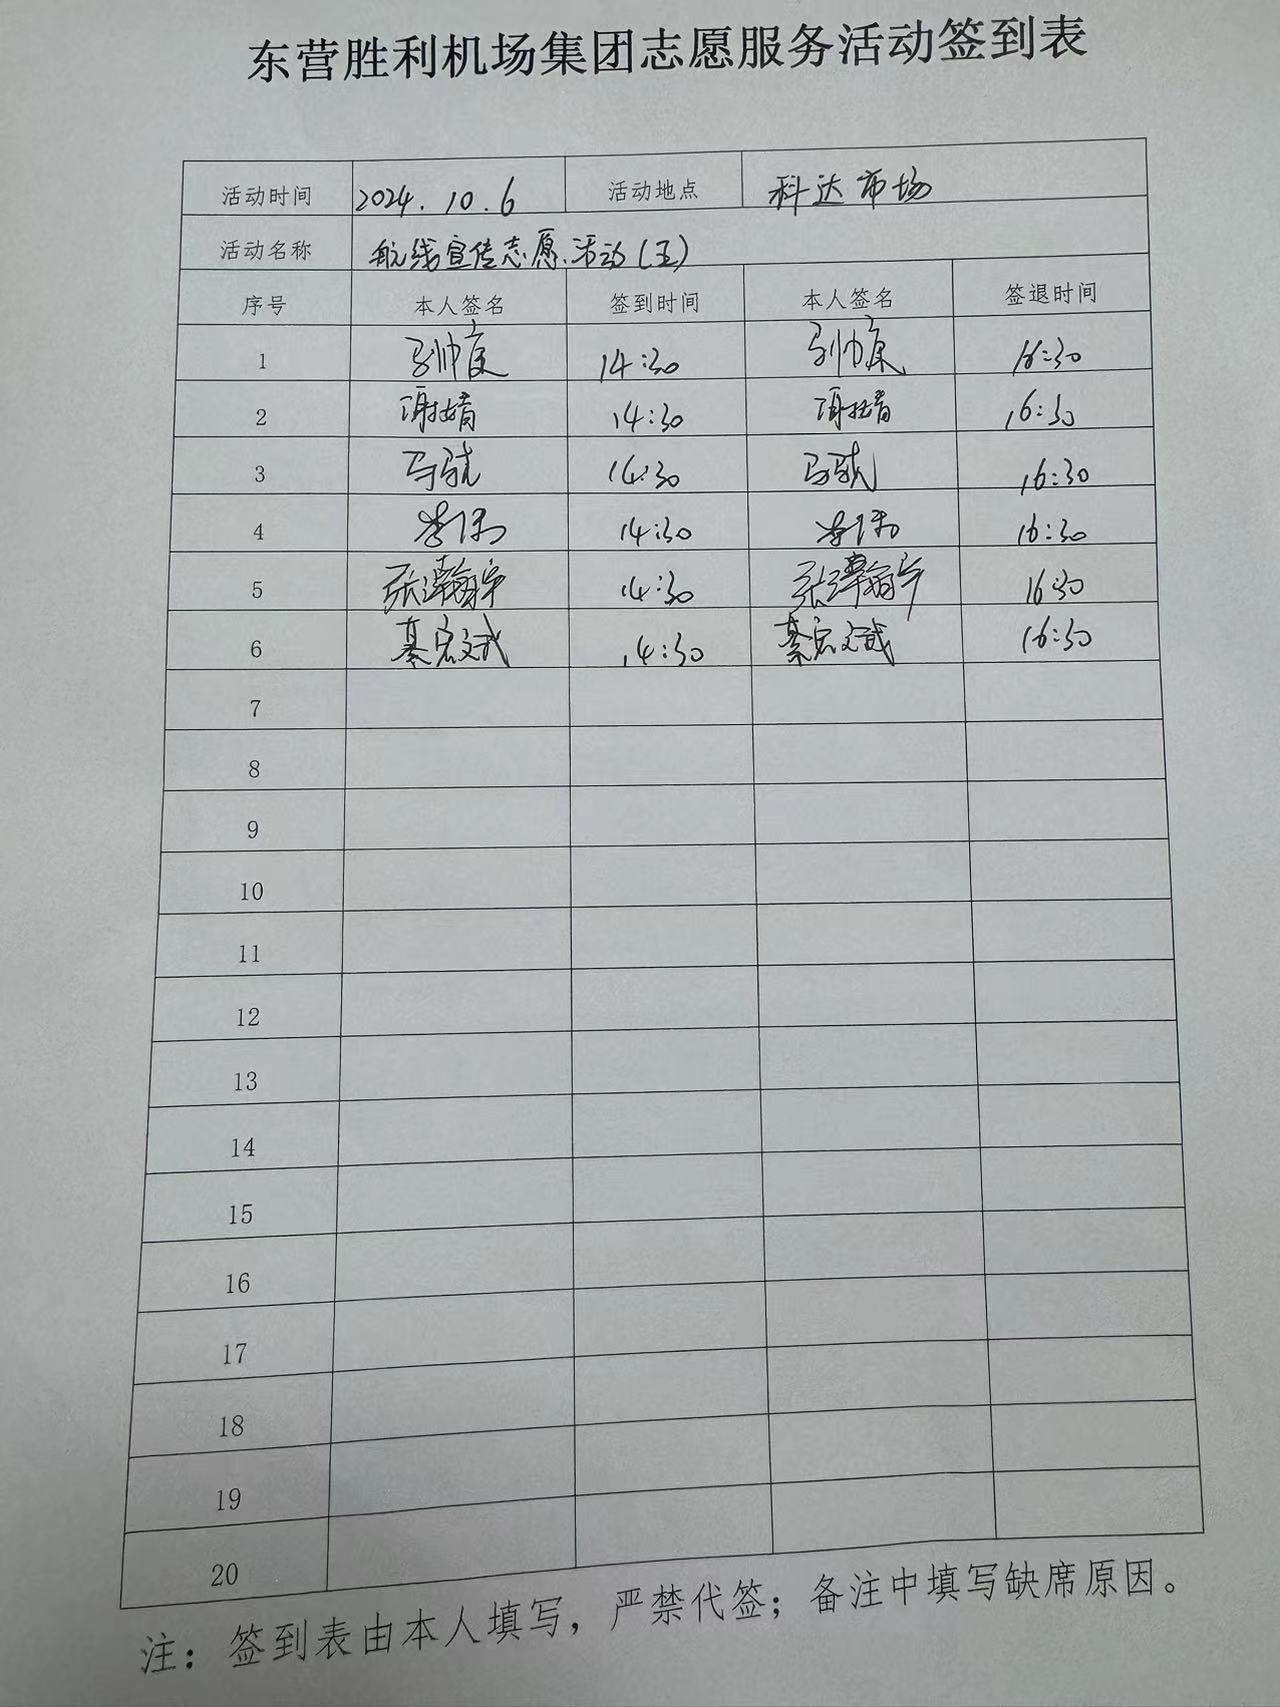 东营胜利机场集团志愿服务活动签到表
活动时间 2024.10.6 活动地点 科达市场
活动名称 航线宣传志愿活动(五)
序号 本人签名 签到时间 本人签名 签退时间
1 14:30 16:30
2 谢婧 14:30 谢婧 16:30
3 马骁 14:30 马骁 16:30
4 李伟 14:30 李伟 16:30
5 张潭翰宇 14:30 张潭翰宇 16:30
6 綦宏斌 14:30 綦宏斌 16:30
7
8
9
10
11
12
13
14
15
16
17
18
19
20
注：签到表由本人填写，严禁代签；备注中填写缺席原因。